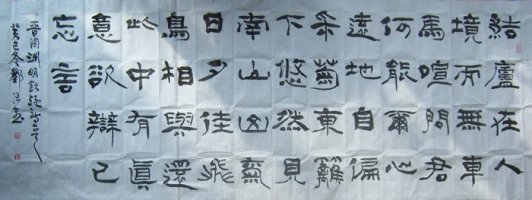 結廬在人
境而無車
馬喧問君
何能爾心
遠地自偏
采菊東籬
下悠然見
南山山氣
日夕佳飛
鳥相與還
此中有眞
意欲辯已
忘言
晉陶淵明飲酒
癸巳冬鄭